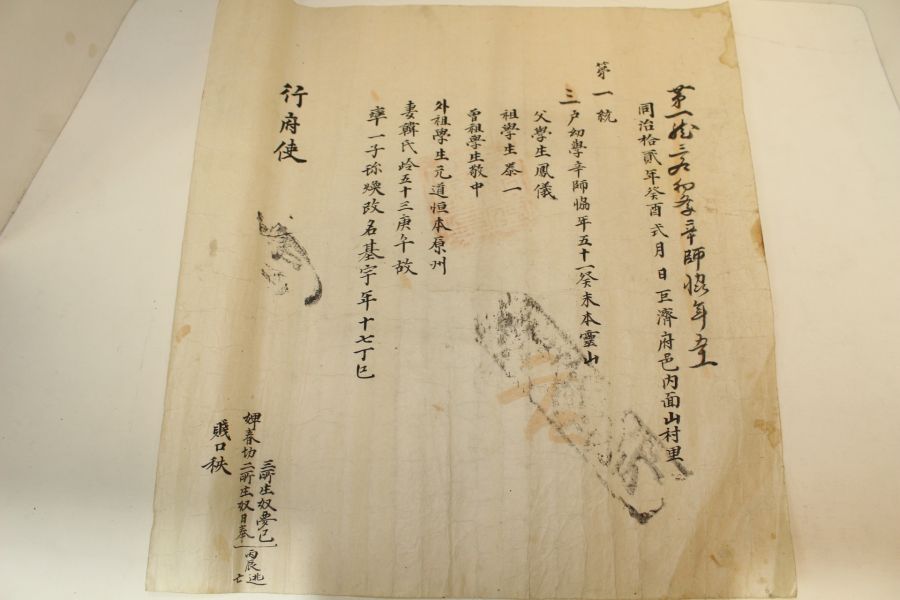 同治拾貳年癸酉式月 日巨濟府邑內面山村里
第一統
三戶幼學辛師協年五十一癸未本靈山
父學生鳳儀
祖學生泰一
曾祖學生敬中
外祖學生元道恒本原州
妻韓氏齡五十三庚午故
率一子 煥改名基宇年十七丁巳
行府使
賤口秩
婢春切二所生奴日奉
三所生奴夢巳
丙辰逃亡